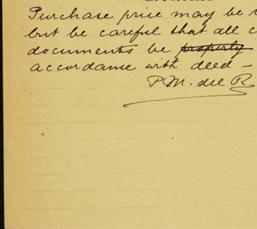 Purchase price may be
but be careful that all
documents be properly
accordance with deed —
P.M. del R